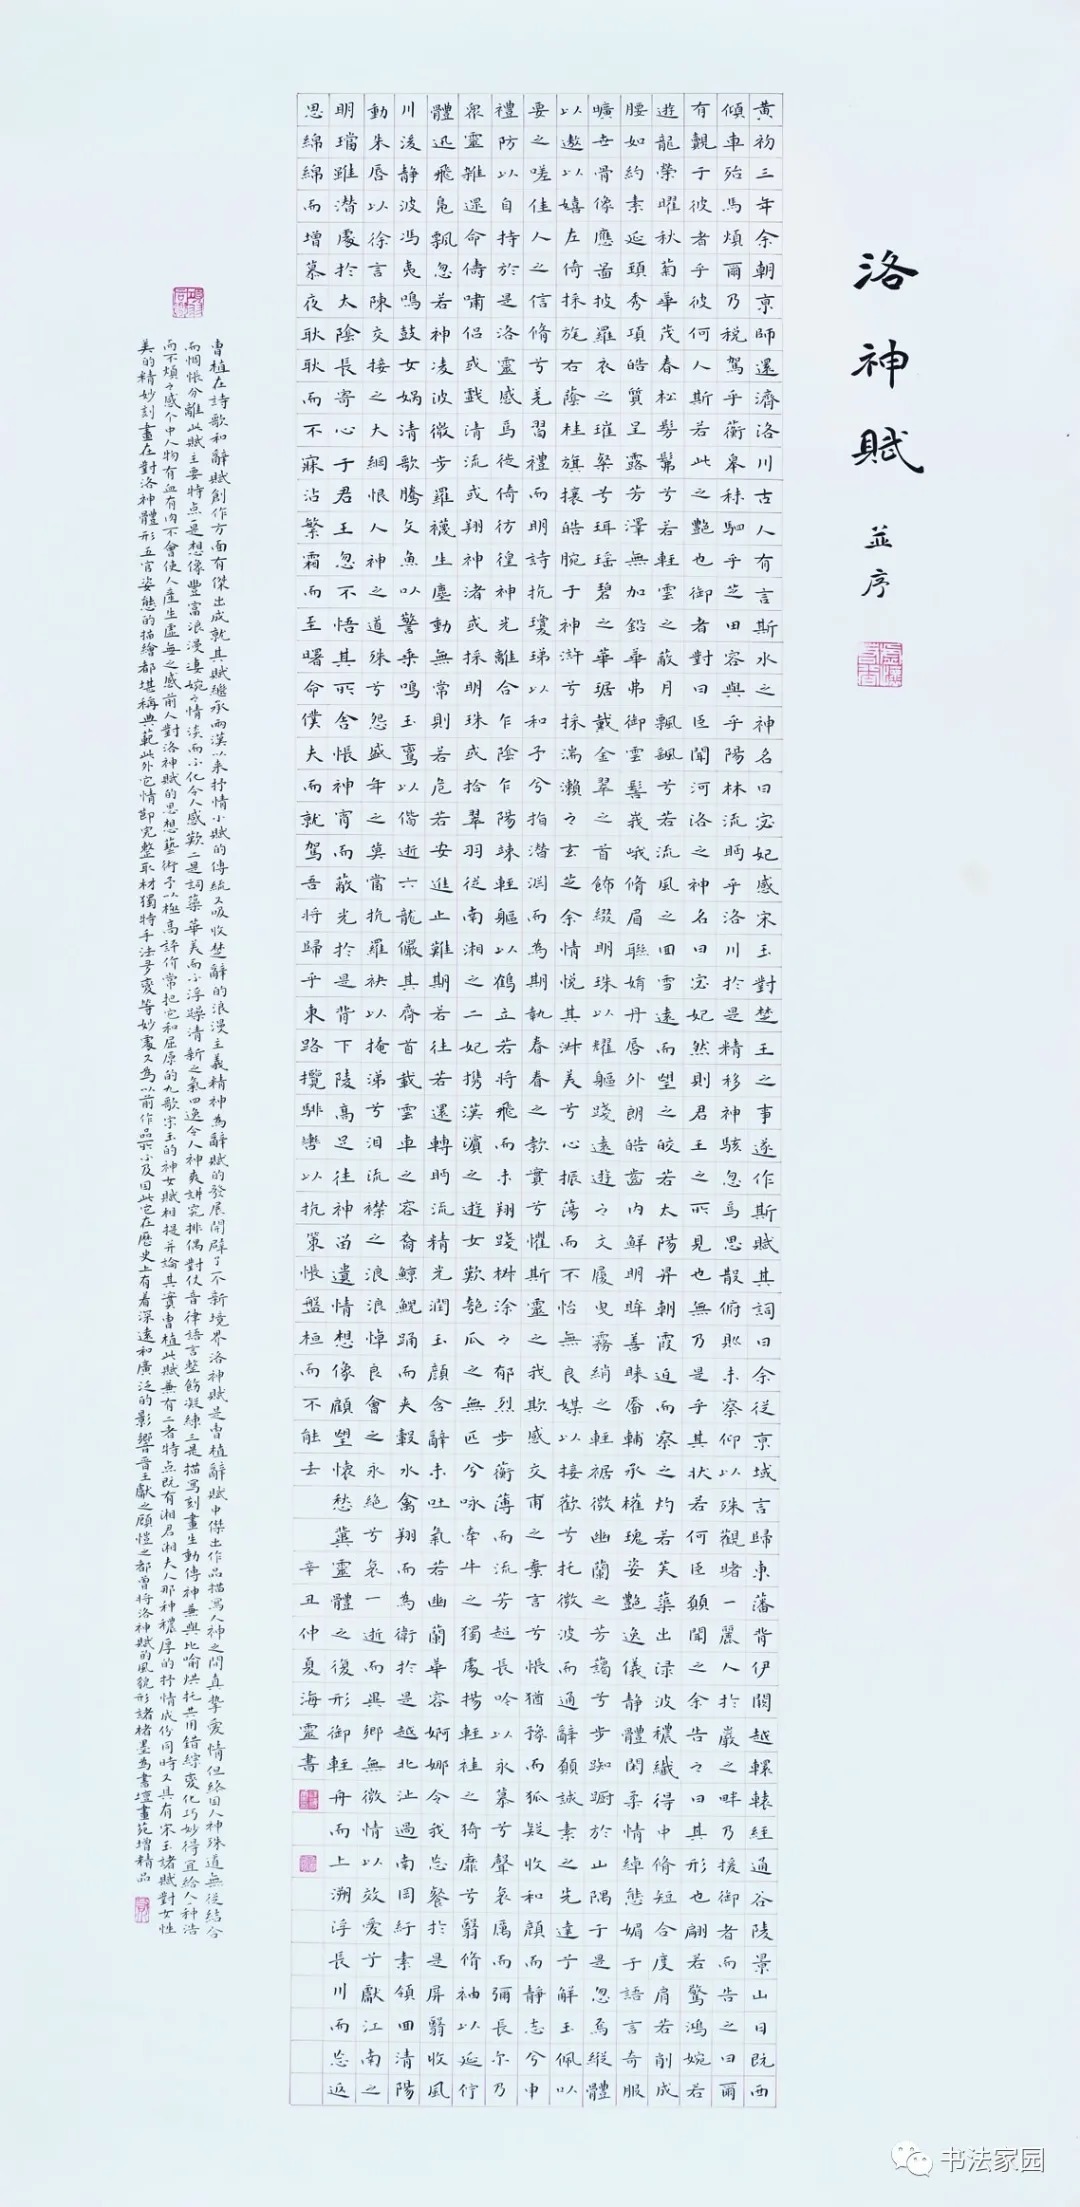 洛神賦 並序
黃初三年余朝京師還濟洛川古人有言斯水之神名曰宓妃感宋玉對楚王之事遂作斯賦其詞曰余從京域言歸東藩背伊闕越轘轅經通谷陵景山日既西
傾車殆馬煩爾乃稅駕乎蘅皋秣駟乎芝田容與乎陽林流眄乎洛川於是精移神駭忽焉思散俯則未察仰以殊觀睹一麗人於巖之畔乃援御者而告之曰爾
有覿于彼者乎彼何人斯若此之艷也御者對曰臣聞河洛之神名曰宓妃然則君王之所見也無乃是乎其狀若何臣願聞之余告之曰其形也翩若驚鴻婉若
遊龍榮曜秋菊華茂春松髣髴兮若輕雲之蔽月飄颻兮若流風之回雪遠而望之皎若太陽昇朝霞迫而察之灼若芙蕖出渌波穠纖得中脩短合度肩若削成
腰如約素延頸秀項皓質呈露芳澤無加鉛華弗御雲髻峩峨脩眉聯娟丹唇外朗皓齒內鮮明眸善睞靨輔承權瑰姿艷逸儀靜體閑柔情綽態媚于語言奇服
曠世骨像應圖披羅衣之璀粲兮珥瑤碧之華琚戴金翠之首飾綴明珠以耀軀踐遠遊之文履曳霧綃之輕裾微幽蘭之芳藹兮步踟躕於山隅于是忽焉縱體
以遨以嬉左倚採旄右蔭桂旗攘皓腕于神滸兮採湍瀨之玄芝余情悅其淑美兮心振蕩而不怡無良媒以接歡兮托微波而通辭願誠素之先達兮解玉佩以
要之嗟佳人之信脩兮羌習禮而明詩抗瓊珶以和予兮指潛淵而為期執眷眷之款實兮懼斯靈之我欺感交甫之棄言兮悵猶豫而狐疑收和顏而靜志兮申
禮防以自持於是洛靈感焉徙倚彷徨神光離合乍陰乍陽竦輕軀以鶴立若將飛而未翔踐椒涂之郁烈步蘅薄而流芳超長吟以永慕兮聲哀厲而彌長尔乃
衆靈雜遝命儔嘯侶或戲清流或翔神渚或採明珠或拾翠羽從南湘之二妃攜漢濱之遊女歎匏瓜之無匹兮咏牽牛之獨處揚輕袿之猗靡兮翳脩袖以延佇
體迅飛鳧飄忽若神凌波微步羅襪生塵動無常則若危若安進止難期若往若還轉眄流精光潤玉顏含辭未吐氣若幽蘭華容婀娜令我忘餐於是屏翳收風
川後靜波馮夷鳴鼓女媧清歌騰文魚以警乘鳴玉鸞以偕逝六龍儼其齊首載雲車之容裔鯨鯢踊而夾轂水禽翔而為衛於是越北沚過南岡紆素領回清陽
動朱唇以徐言陳交接之大綱恨人神之道殊兮怨盛年之莫當抗羅袂以掩涕兮淚流襟之浪浪悼良會之永絕兮哀一逝而異鄉無微情以效愛兮獻江南之
明璫雖潛處於太陰長寄心于君王忽不悟其所舍悵神宵而蔽光於是背下陵高足往神留遺情想像顧望懷愁冀靈體之復形御輕舟而上溯浮長川而忘返
思綿綿而增慕夜耿耿而不寐沾繁霜而至曙命僕夫而就駕吾將歸乎東路攬騑轡以抗策悵盤桓而不能去 辛丑仲夏海靈書
曹植在詩歌和辭賦創作方面有傑出成就其賦繼承兩漢以來抒情小賦的傳統又吸收楚辭的浪漫主義精神為辭賦的發展開辟了一個新境界洛神賦是曹植辭賦中傑出作品描寫人神之間真摯愛情但終因人神殊道無從結合
而惆悵分離此賦主要特点一是想像豐富浪漫淒婉之情淡而不化令人感歎二是詞藻華美而不浮躁清新之氣四逸令人神爽講究排偶對仗音律語言整飭凝練三是描寫刻畫生動傳神兼與比喻烘托共用錯綜變化巧妙得宜給人一種浩
而不煩之感個中人物有血有肉不會使人產生虛無之感前人對洛神賦的思想藝術予以極高評价常把它和屈原的九歌宋玉的神女賦相提并論其實曹植此賦兼有二者特点既有湘君湘夫人那种穠厚的抒情成份同時又具有宋玉諸賦對女性
美的精妙刻畫在對洛神體形五官姿態的描繪都堪稱典範此外它情節完整取材獨特手法多變等妙處又為以前作品所不及因此它在歷史上有着深遠和廣泛的影響晉王獻之顧愷之都曾將洛神賦的風貌形諸楮墨為書壇畫苑增精品
书法家园